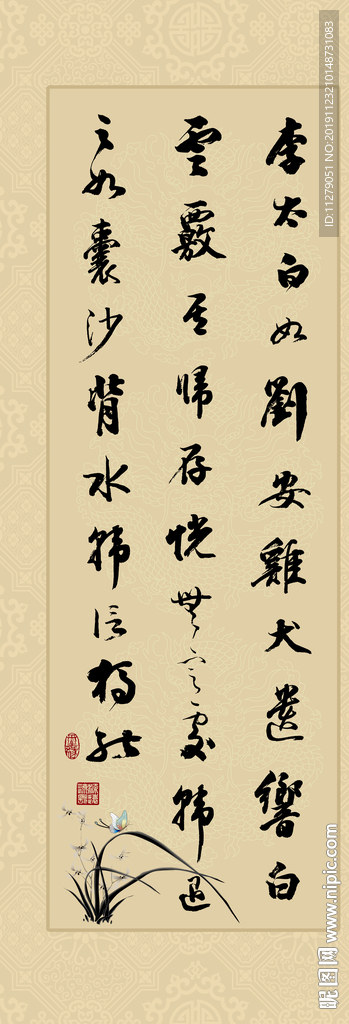 李太白如劉安雞犬遺響白
雲覈其歸存恍無定處韓退
之如囊沙背水韓信獨能
ID:11279051 NO:20191123210148731083
昵图网 www.nipic.com